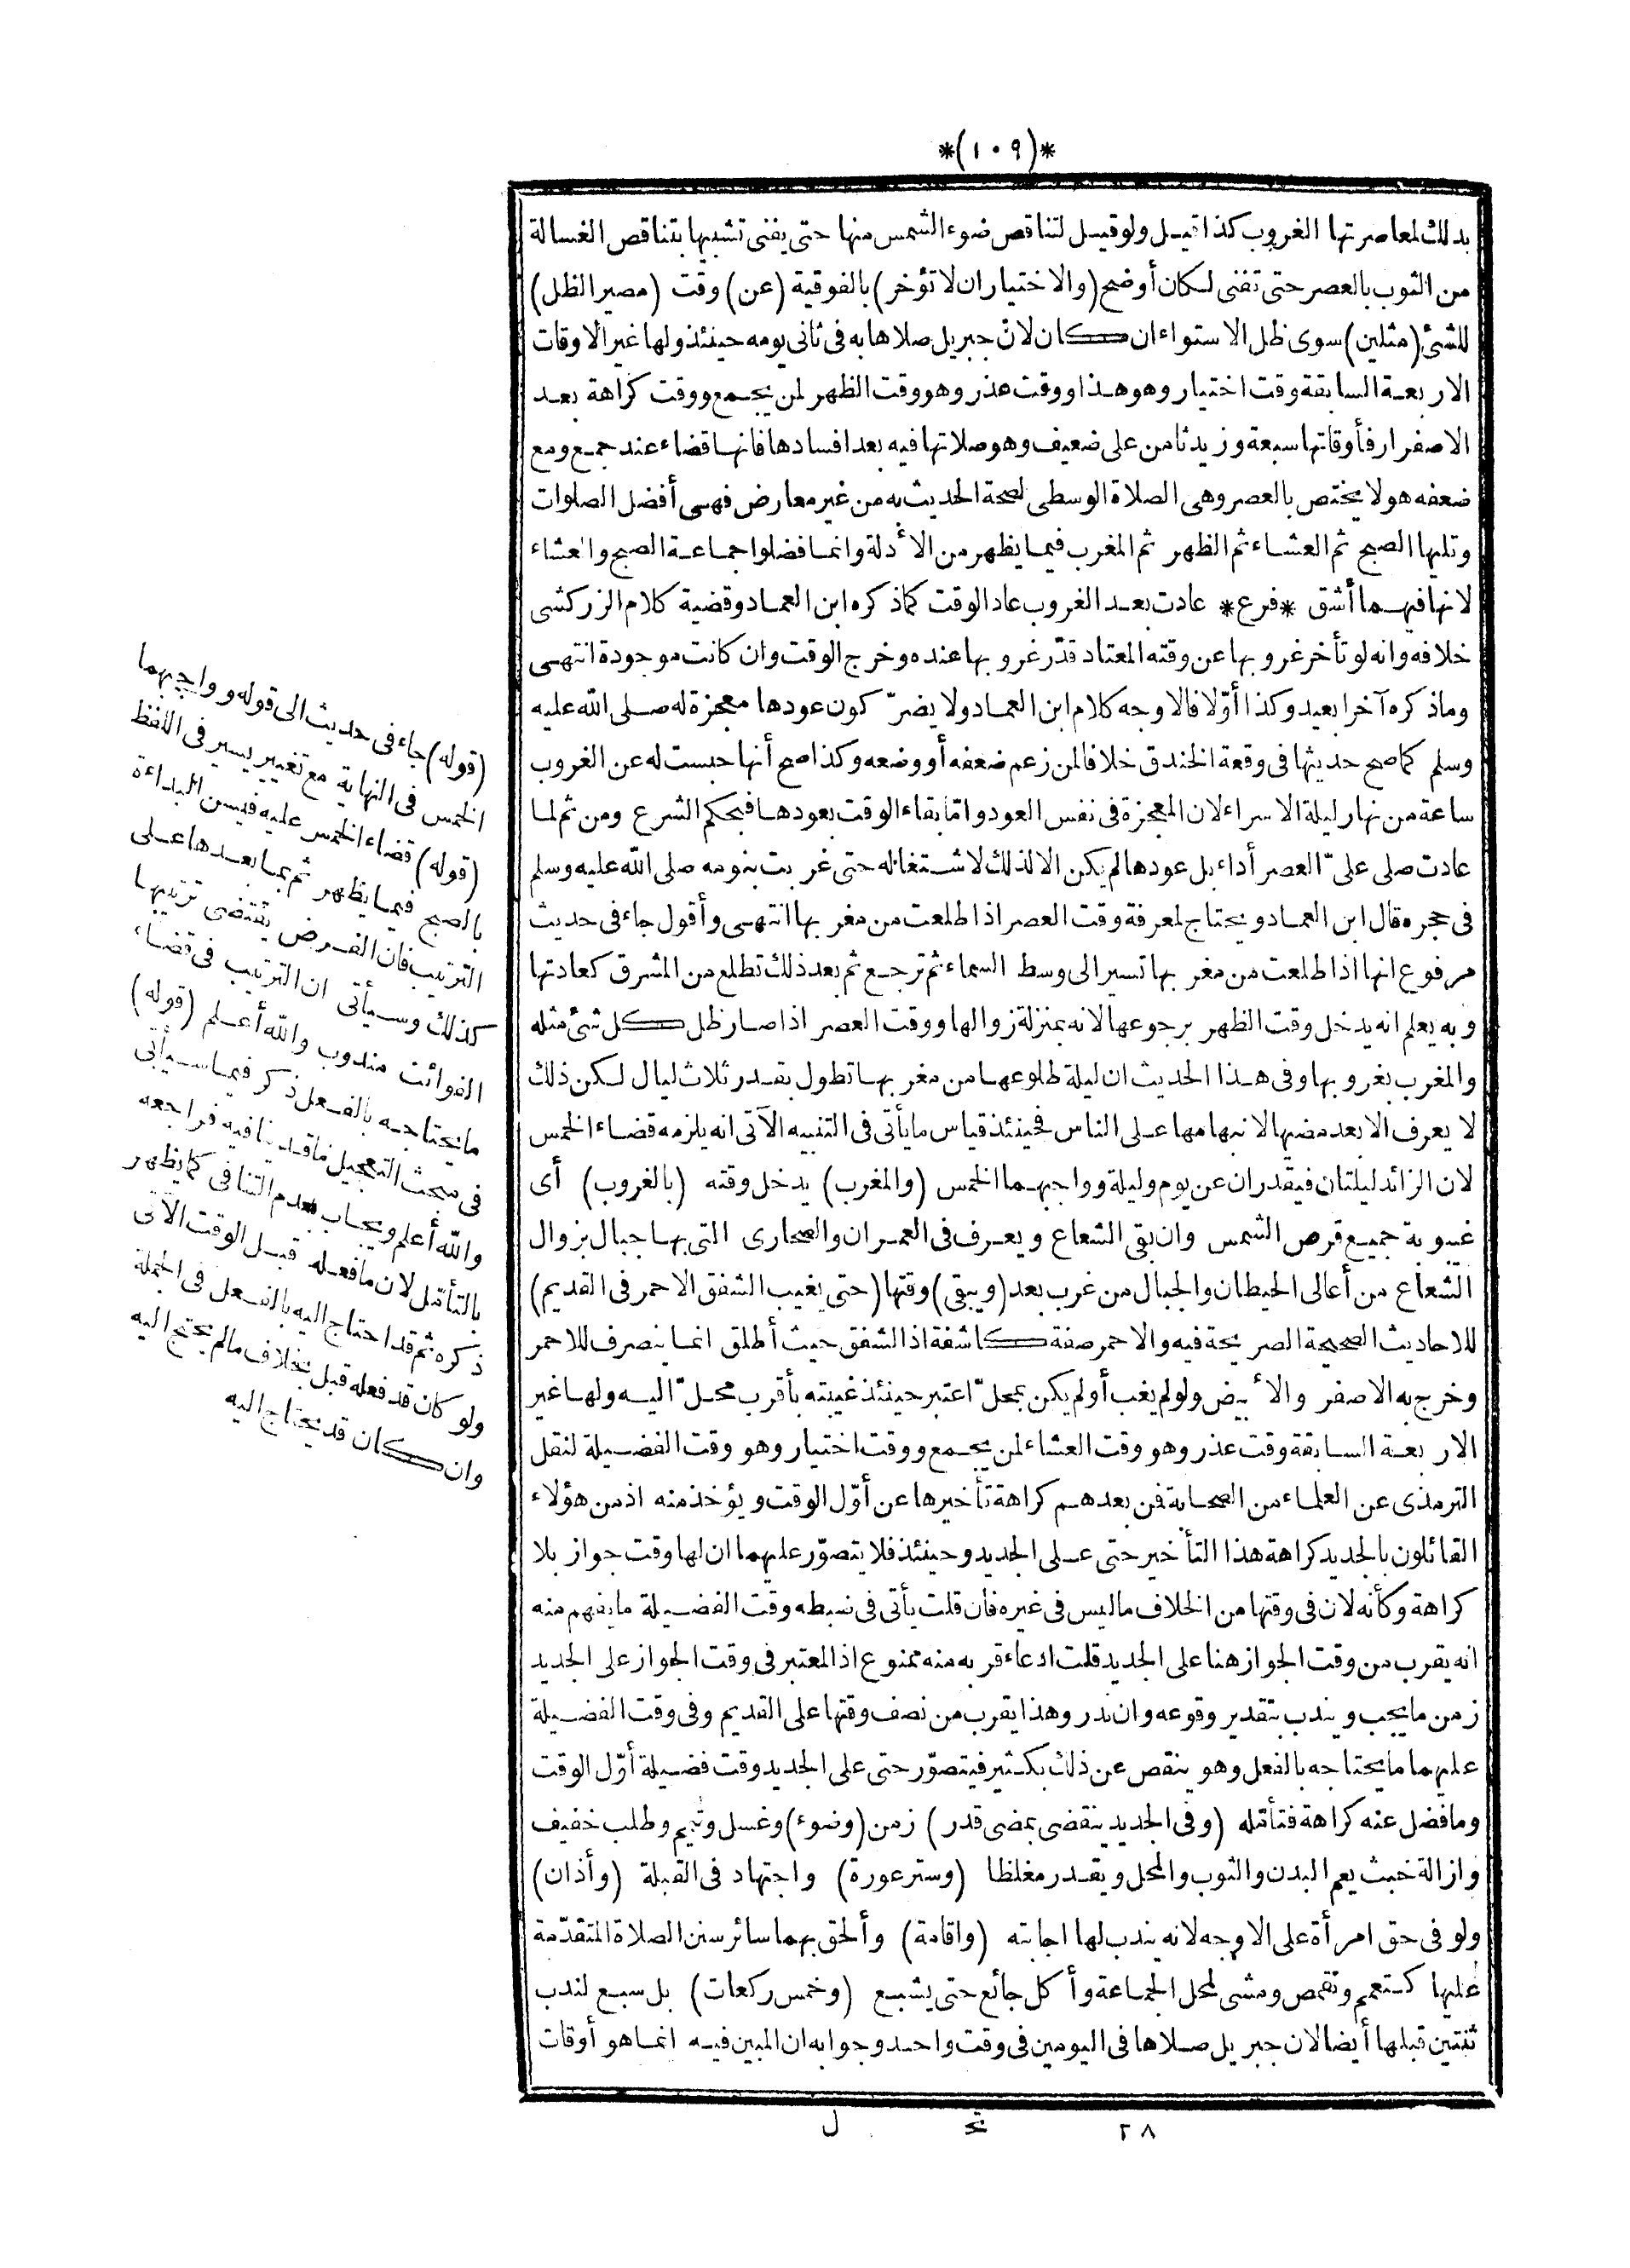 *(١٠٩)*
بذلك لمعاصرتها الغروب كذا قيل ولو قيل لتناقص ضوء الشمس منها حتى يفنى تشبيها بتناقص الغسالة
من الثوب بالعصر حتى تفنى لكان أوضح (والاختيار ان لا تؤخر) بالفوقية (عن) وقت (مصير الظل)
للشئ (مثلين) سوى ظل الاستواء ان كان لانّ جبريل صلاها به فى ثانى يومه حينئذ ولها غير الاوقات
الاربعة السابقة وقت اختيار وهو هذا ووقت عذر وهو وقت الظهر لمن يجمع ووقت كراهة بعد
الاصفرار فأوقاتها سبعة وزيد ثامن على ضعيف وهو صلاتها فيه بعد افسادها فانها قضاء عند جمع ومع
ضعفه هو لا يختص بالعصر وهى الصلاة الوسطى لصحة الحديث به من غير معارض فهى أفضل الصلوات
وتليها الصبح ثم العشاء ثم الظهر ثم المغرب فيما يظهر من الأدلة وانما فضلوا جماعة الصبح والعشاء
لانها فيهما أشق *فرع* عادت بعد الغروب عاد الوقت كما ذكره ابن العماد وقضية كلام الزركشى
خلافه وانه لو تأخر غروبها عن وقته المعتاد قدّر غروبها عنده وخرج الوقت وان كانت موجودة انتهى
وما ذكره آخرا بعيد وكذا أوّلا فالاوجه كلام ابن العماد ولا يضرّ كون عودها معجزة له صلى الله عليه
وسلم كما صح حديثها فى وقعة الخندق خلافا لمن زعم ضعفه أو وضعه وكذا صح أنها حبست له عن الغروب
ساعة من نهار ليلة الاسراء لان المعجزة فى نفس العود وامّا بقاء الوقت بعودها فبحكم الشرع ومن ثم لما
عادت صلى علىّ العصر أداء بل عودها لم يكن الا لذلك لاشتغاله حتى غربت بنومه صلى الله عليه وسلم
فى حجره قال ابن العماد ويحتاج لمعرفة وقت العصر اذا طلعت من مغربها انتهى وأقول جاء فى حديث
مرفوع انها اذا طلعت من مغربها تسير الى وسط السماء ثم ترجع ثم بعد ذلك تطلع من المشرق كعادتها
وبه يعلم انه يدخل وقت الظهر برجوعها لانه بمنزلة زوالها ووقت العصر اذا صار ظل كل شئ مثله
والمغرب بغروبها وفى هذا الحديث ان ليلة طلوعها من مغربها تطول بقدر ثلاث ليال لكن ذلك
لا يعرف الا بعد مضيها لانبهامها على الناس فحينئذ قياس ما يأتى فى التنبيه الآتى انه يلزمه قضاء الخمس
لان الزائد ليلتان فيقدران عن يوم وليلة وواجبهما الخمس (والمغرب) يدخل وقته (بالغروب) أى
غيبوبة جميع قرص الشمس وان بقى الشعاع ويعرف فى العمران والصحارى التى بها جبال بزوال
الشعاع من أعالى الحيطان والجبال من غرب بعد (ويبقى) وقتها (حتى يغيب الشفق الاحمر فى القديم)
للاحاديث الصحيحة الصريحة فيه والاحمر صفة كاشفة اذ الشفق حيث أطلق انما ينصرف للاحمر
وخرج به الاصفر والأبيض ولو لم يغب أو لم يكن بمحلّ اعتبر حينئذ غيبته بأقرب محلّ اليه ولها غير
الاربعة السابقة وقت عذر وهو وقت العشاء لمن يجمع ووقت اختيار وهو وقت الفضيلة لنقل
الترمذى عن العلماء من الصحابة فمن بعدهم كراهة تأخيرها عن أوّل الوقت ويؤخذ منه اذ من هؤلاء
القائلون بالجديد كراهة هذا التأخير حتى على الجديد وحينئذ فلا يتصوّر عليهما ان لها وقت جواز بلا
كراهة وكأنه لان فى وقتها من الخلاف ما ليس فى غيره فان قلت يأتى فى ضبطه وقت الفضيلة ما يفهم منه
انه يقرب من وقت الجواز هنا على الجديد قلت ادعاء قربه منه ممنوع اذ المعتبر فى وقت الجواز على الجديد
زمن ما يجب ويندب بتقدير وقوعه وان ندر وهذا يقرب من نصف وقتها على القديم وفى وقت الفضيلة
عليهما ما يحتاجه بالفعل وهو ينقص عن ذلك بكثير فيتصوّر حتى على الجديد وقت فضيلة أوّل الوقت
وما فضل عنه كراهة فتأمّله (وفى الجديد ينقضى بمضى قدر) زمن (وضوء) وغسل وتيمم وطلب خفيف
وازالة خبث يعم البدن والثوب والمحل ويقدر مغلظا (وستر عورة) واجتهاد فى القبلة (وأذان)
ولو فى حق امرأة على الاوجه لانه يندب لها اجابته (واقامة) وألحق بهما سائر سنن الصلاة المتقدّمة
عليها كتعمم وتقمص ومشى لمحل الجماعة وأكل جائع حتى يشبع (وخمس ركعات) بل سبع لندب
ثنتين قبلها أيضا لان جبريل صلاها فى اليومين فى وقت واحد وجوابه ان المبين فيه انما هو أوقات
٢٨ تح ل
(قوله) جاء فى حديث الى قوله وواجبهما
الخمس فى النهاية مع تغيير يسير فى اللفظ
(قوله) قضاء الخمس عليه فيسن البداءة
بالصبح فيما يظهر ثم بما بعدها على
الترتيب فان الفرض يقتضى ترتيبها
كذلك وسيأتى ان الترتيب فى قضاء
الفوائت مندوب والله أعلم (قوله)
ما يحتاجه بالفعل ذكر فيما سيأتى
فى مبحث التعجيل ما قد ينافيه فراجعه
والله أعلم ويجاب بعدم التنافى كما يظهر
بالتأمّل لان ما فعله قبل الوقت الآتى
ذكره ثم قد احتاج اليه بالفعل فى الجملة
ولو كان قد فعله قبل بخلاف ما لم يحتج اليه
وان كان قد يحتاج اليه